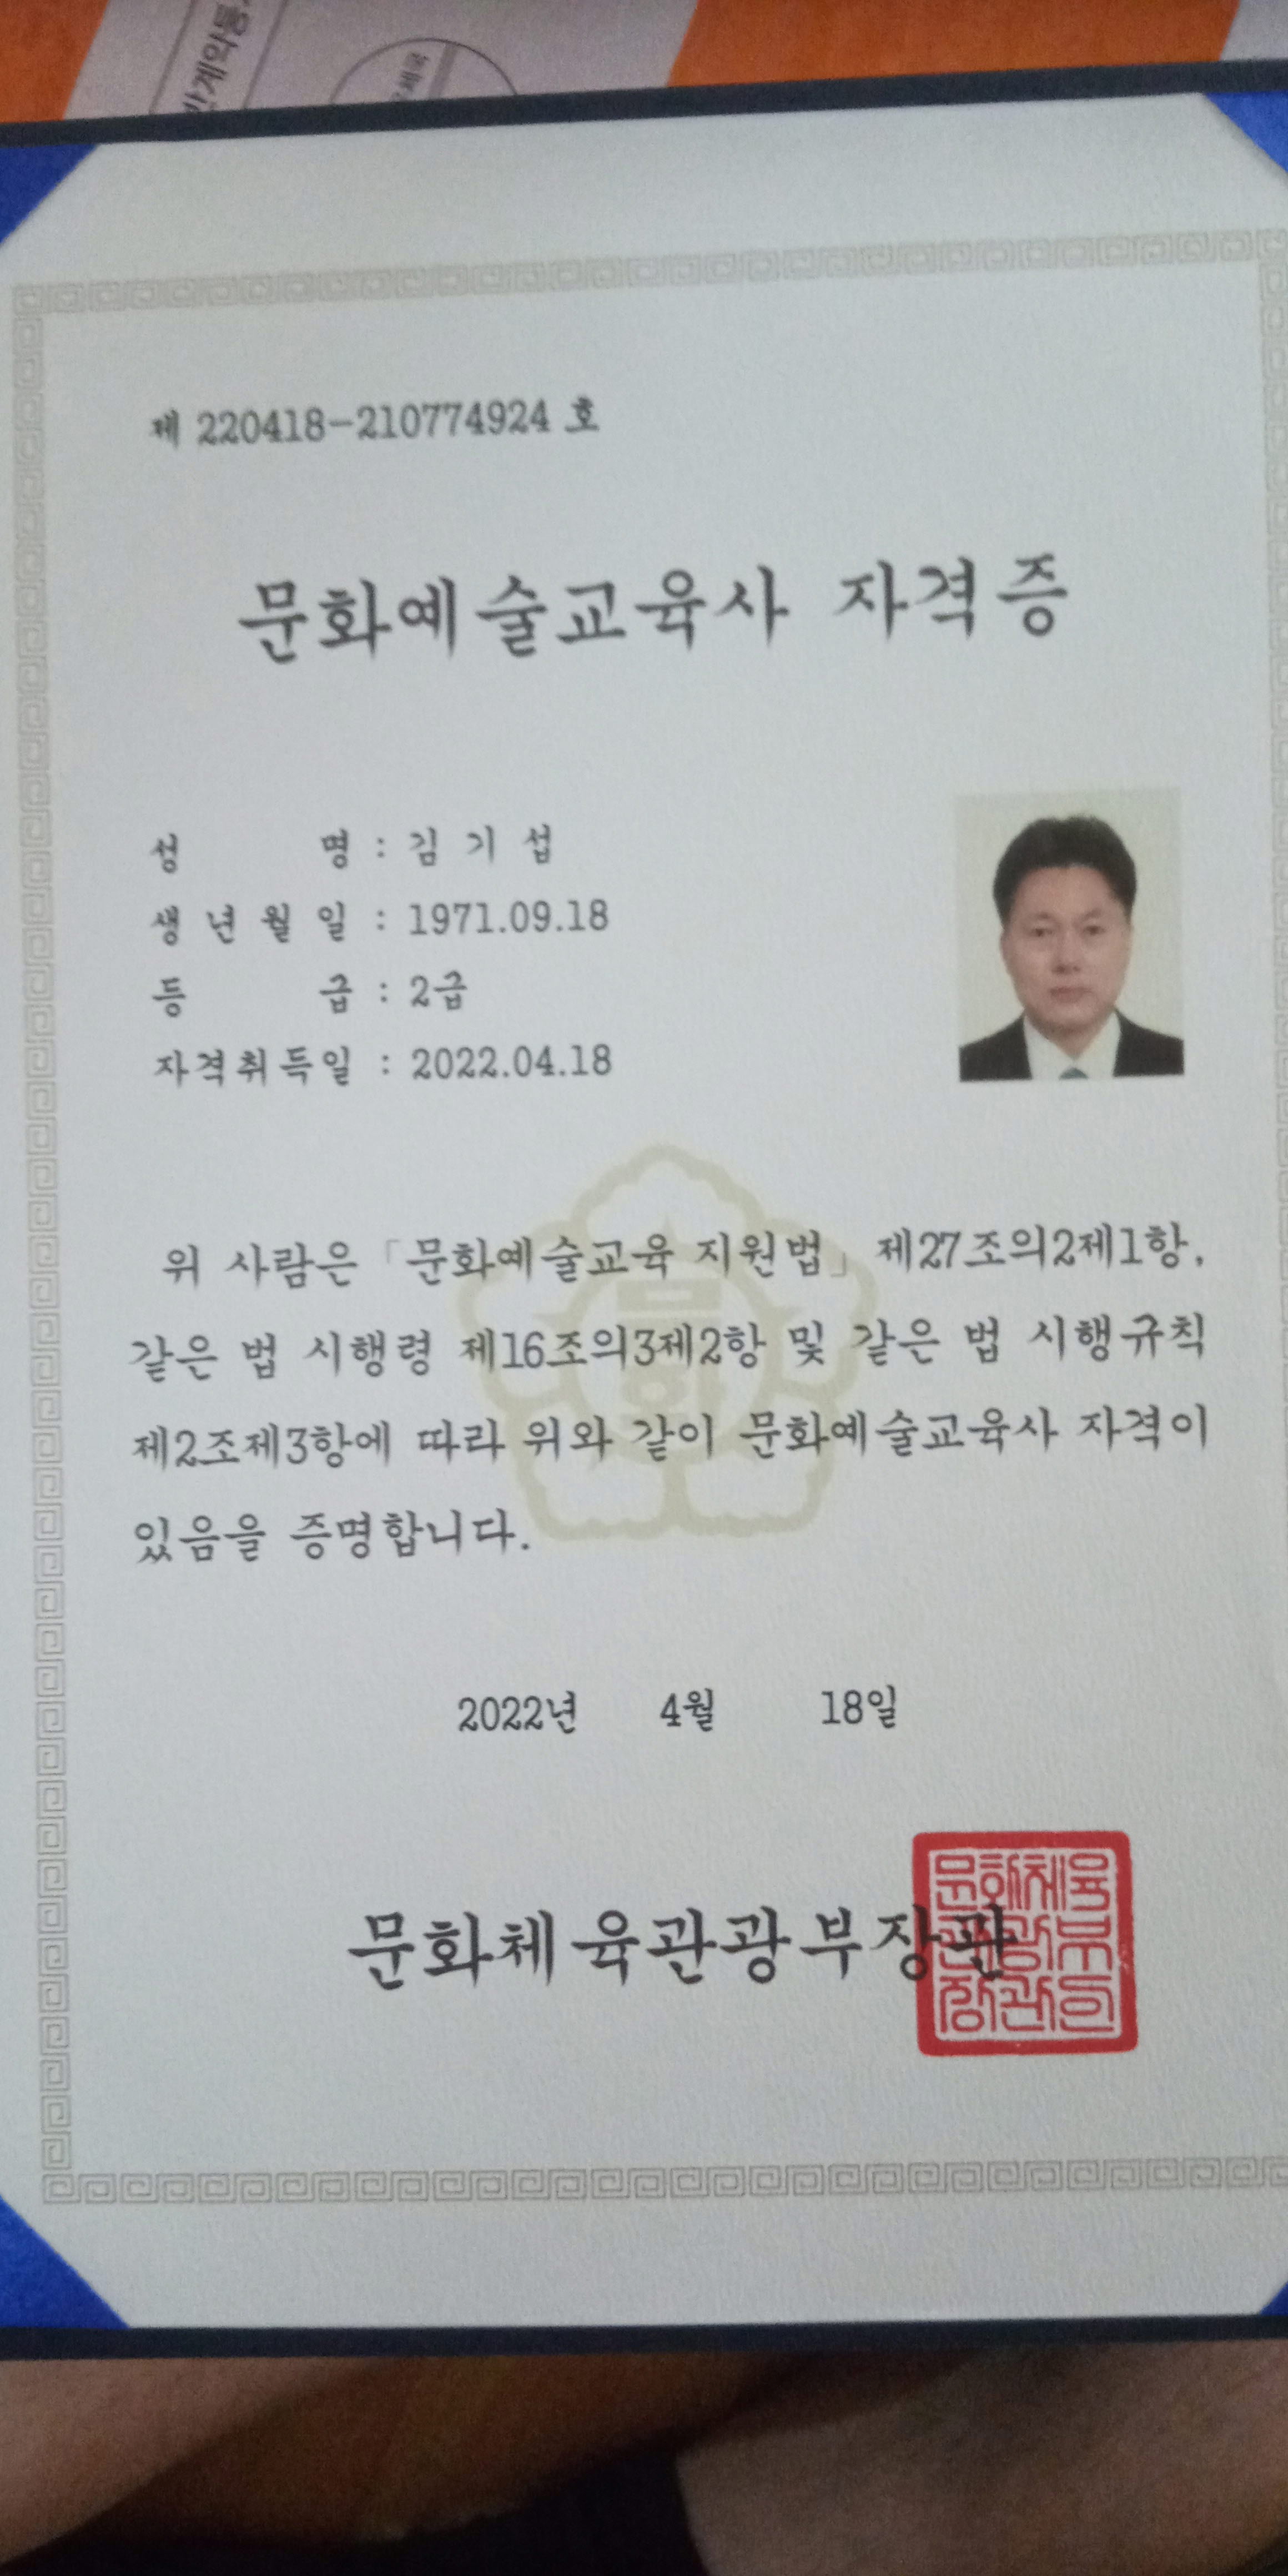 반계약통
제 220418-210774924 호
문화예술교육사 자격증
성 명 : 김 기 섭
생 년 월 일 : 1971.09.18
등 급 : 2급
자격취득일 : 2022.04.18
위 사람은 「문화예술교육 지원법」 제27조의2제1항,
같은 법 시행령 제16조의3제2항 및 같은 법 시행규칙
제2조제3항에 따라 위와 같이 문화예술교육사 자격이
있음을 증명합니다.
2022년 4월 18일
문화체육관광부장관
문화체육
관광부
장관의